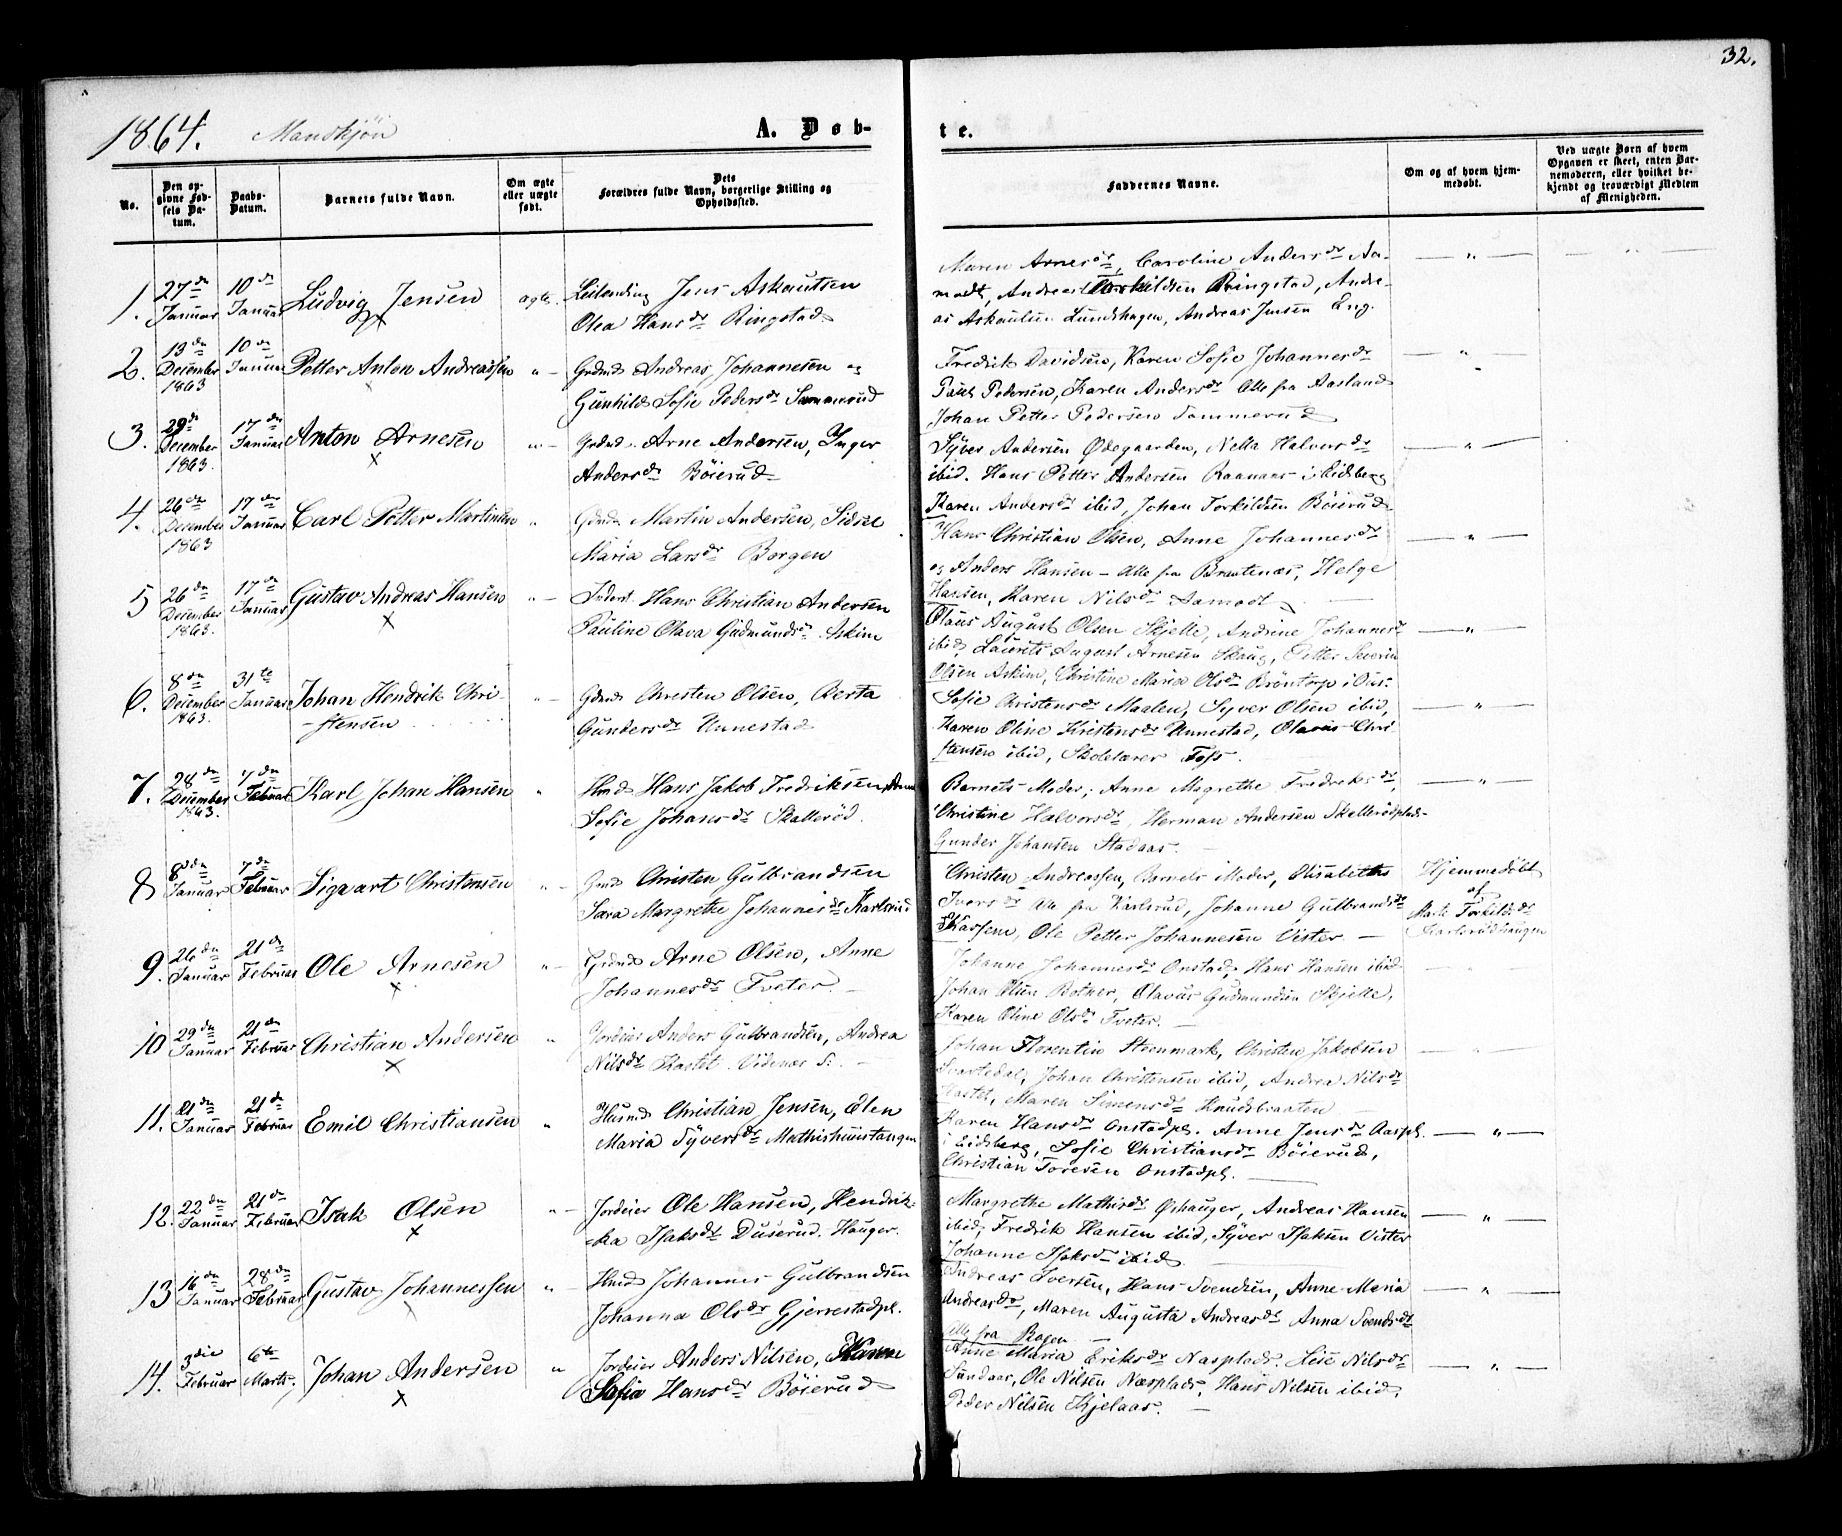 32.
1864. Mandkjøn A. Døb- te.
No.
Den opgivne Fødsels Datum.
Daabs-Datum.
Barnets fulde Navn.
Om ægte eller uægte født.
Dets Forældres fulde Navn, borgerlige Stilling og Opholdssted.
Faddernes Navne.
Om og af hvem hjemmedøbt.
Ved uægte Børn af hvem Opgaven er skeet, enten Barnemoderen, eller hvilket bekjendt og troværdigt Medlem af Menigheden.
1. 27de Januar 10de Januar Ludvig Jensen ægte.
Leilending Jens Askautsen
Olea Hansdr Ringstad
Maren Arnesdr, Caroline Andersdr Aa-
modt, Andreas Torkildsen Ringstad, Andre-
as Askautsen Lundshagen, Andreas Jensen Eng.
2. 13de December 1863 10de Januar Petter Anton Andreassen " -
Grdmd Andreas Johannesen og
Gunhild Sofie Pedersdr Sammerud
Fredrik Davidsen, Karen Sofie Johannesdr
Paul Pedersen, Karen Andersdr Alle fra Aasland
Johan Petter Pedersen Sammerud
3. 29de December 1863. 17de Januar Anton Arnesen " -
Grdmd. Arne Andersen, Inger
Andersdr Böierud
Syver Andersen Ødegaarden, Nella Halvorsdr
ibid. Hans Petter Andersen Raanaas i Eidsberg
Karen Andersdr ibid, Johan Torkildsen Böierud
4. 26de December 1863 17de Januar Carl Petter Martinsen "
Grdmd Martin Andersen, Sidsel
Maria Larsdr Borgen
Hans Christian Olsen, Anne Johannesdr
og Anders Hansen - Alle fra Brautenæs, Helge
Hansen, Karen Nilsdr Aamodt
5 26de December 1863. 17de Januar Gustav Andreas Hansen " -
Inderst Hans Christian Andersen
Pauline Olava Gudmundsdr Askim
Olaus August Olsen Skjelle, Andrine Johannesdr
ibid, Laurits August Arnesen Skaug, Petter Severin
Olsen Askim, Christine Maria Olsdr Bröntorp
6. 8de December 1863. 31te Januar Johan Hendrik Chri-
-stensen " -
Grdmd Christen Olsen, Berta
Gundersdr Unnestad
Sofie Christensdr Maalen, Syver Olsen ibid,
Karen Oline Kristensdr Unnestad, Olavus Chri-
stensen ibid, Skolelærer Foss.
7. 28de December 1863. 7de Februar Karl Johan Hansen "
Hmd Hans Jakob Fredriksen, Anne
Sofie Johansdr Skallerød.
Barnets Moder, Anne Magrethe Fredriksdr,
Christine Halvorsdr, Herman Andersen Skallerødplads
Gunder Johansen Stadaas.
8 8de Januar 7de Februar Sigvart Christensen " -
Gmd Christen Gulbrandsen
Sara Margrethe Johannesdr Karlsrud
Christen Andreassen, Barnets Moder, Elisabeths
Iversdr Alle fra Karlsrud, Johanne Gulbrandsdr
Kassen, Ole Petter Johannesen Vister. -
Hjemmedöbt
af
Marte Torkildsdr
Karlsrudhaugen
9. 26de Januar 21de Februar Ole Arnesen " -
Grdmd Arne Olsen, Anne
Johannesdr Tveter. -
Johanne Johannesdr Onstad, Hans Hansen ibid.
Johan Olsen Botner, Olavus Gudmundsen Skjelle,
Karen Oline Olsdr Tveter. -
10 29de Januar 21de Februar Christian Andersen "
Jordeier Anders Gulbrandsen, Andrea
Nilsdr Kastet. Vidnæs S: -
Johan Florentin Steenmark, Christen Jakobsen
Svartedal, Johan Christensen ibid, Andrea Nilsdr
Kastet, Maren Simensdr Knudsbraaten
11. 21de Januar 21de Februar Emil Christiansen "
Husmd Christian Jensen, Elen
Maria Syversdr Mathishuustangen
Karen Hansdr Onstadpl. Anne Jensdr Aaspl.
i Eidsberg, Sofie Christiansdr Böierud,
Christian Toresen Onstadpl.
12. 22de Januar 21de Februar Isak Olsen " -
Jordeier Ole Hansen, Hendrik-
-ka Isaksdr Duserud. Hauger.
Margrethe Mathisdr Øshauger, Andreas Hansen
ibid, Fredrik Hansen ibid, Syver Isaksen Vister
Johanne Isaksdr ibid
13 16de Januar 28de Februar Gustav Johannessen " -
Hmd Johannes Gulbrandsen
Johanna Olsdr Gjerrestadpl.
Andreas Iversen, Hans Svendsen, Anne Maria
Andreasdr, Maren Augusta Andreasdr Anna Svendsdr
Alle fra Ragen
14. 3die Februar 6te Marts. Johan Andersen "
Jordeier Anders Nilsen, Karen
Sofia Hansdr Böierud
Anne Maria Eriksdr Næsplads. Lise Nilsdr
Sandaas, Ole Nilsen Næsplads, Hans Nilsen ibid,
Peder Nilsen Kjelaas. -